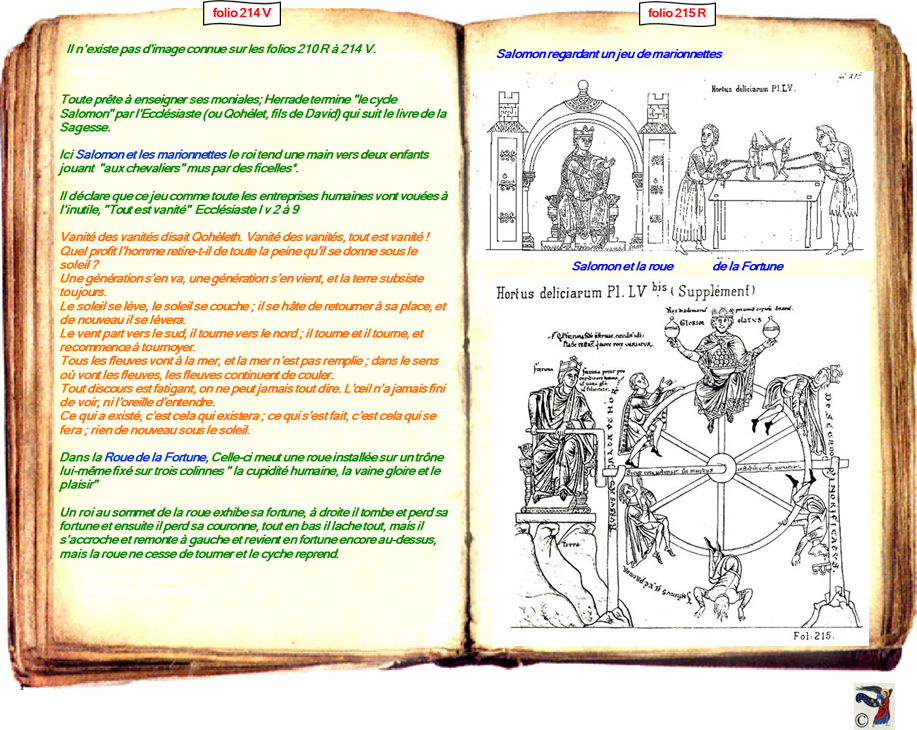 folio 214 V
Il n'existe pas d'image connue sur les folios 210 R à 214 V.
Toute prête à enseigner ses moniales; Herrade termine "le cycle
Salomon" par l'Ecclésiaste (ou Qohélet, fils de David) qui suit le livre de la
Sagesse.
Ici Salomon et les marionnettes le roi tend une main vers deux enfants
jouant "aux chevaliers" mus par des ficelles*.
Il déclare que ce jeu comme toute les entreprises humaines vont vouées à
l'inutile, "Tout est vanité" Ecclésiaste I v 2 à 9
Vanité des vanités disait Qohèleth. Vanité des vanités, tout est vanité !
Quel profit l'homme retire-t-il de toute la peine qu'il se donne sous le
soleil ?
Une génération s'en va, une génération s'en vient, et la terre subsiste
toujours.
Le soleil se lève, le soleil se couche ; il se hâte de retourner à sa place, et
de nouveau il se lèvera.
Le vent part vers le sud, il tourne vers le nord ; il tourne et il tourne, et
recommence à tournoyer.
Tous les fleuves vont à la mer, et la mer n'est pas remplie ; dans le sens
où vont les fleuves, les fleuves continuent de couler.
Tout discours est fatigant, on ne peut jamais tout dire. L'œil n'a jamais fini
de voir, ni l'oreille d'entendre.
Ce qui a existé, c'est cela qui existera ; ce qui s'est fait, c'est cela qui se
fera ; rien de nouveau sous le soleil.
Dans la Roue de la Fortune, Celle-ci meut une roue installée sur un trône
lui-même fixé sur trois colinnes " la cupidité humaine, la vaine gloire et le
plaisir"
Un roi au sommet de la roue exhibe sa fortune, à droite il tombe et perd sa
fortune et ensuite il perd sa couronne, tout en bas il lache tout, mais il
s'accroche et remonte à gauche et revient en fortune encore au-dessus,
mais la roue ne cesse de tourner et le cyche reprend.
folio 215 R
Salomon regardant un jeu de marionnettes
Hortus deliciarum Pl. LV.
Salomon et la roue de la Fortune
Hortus deliciarum Pl. LV bis (Supplément)
Glorior elatus
fortuna
terra
Fol: 215.
©